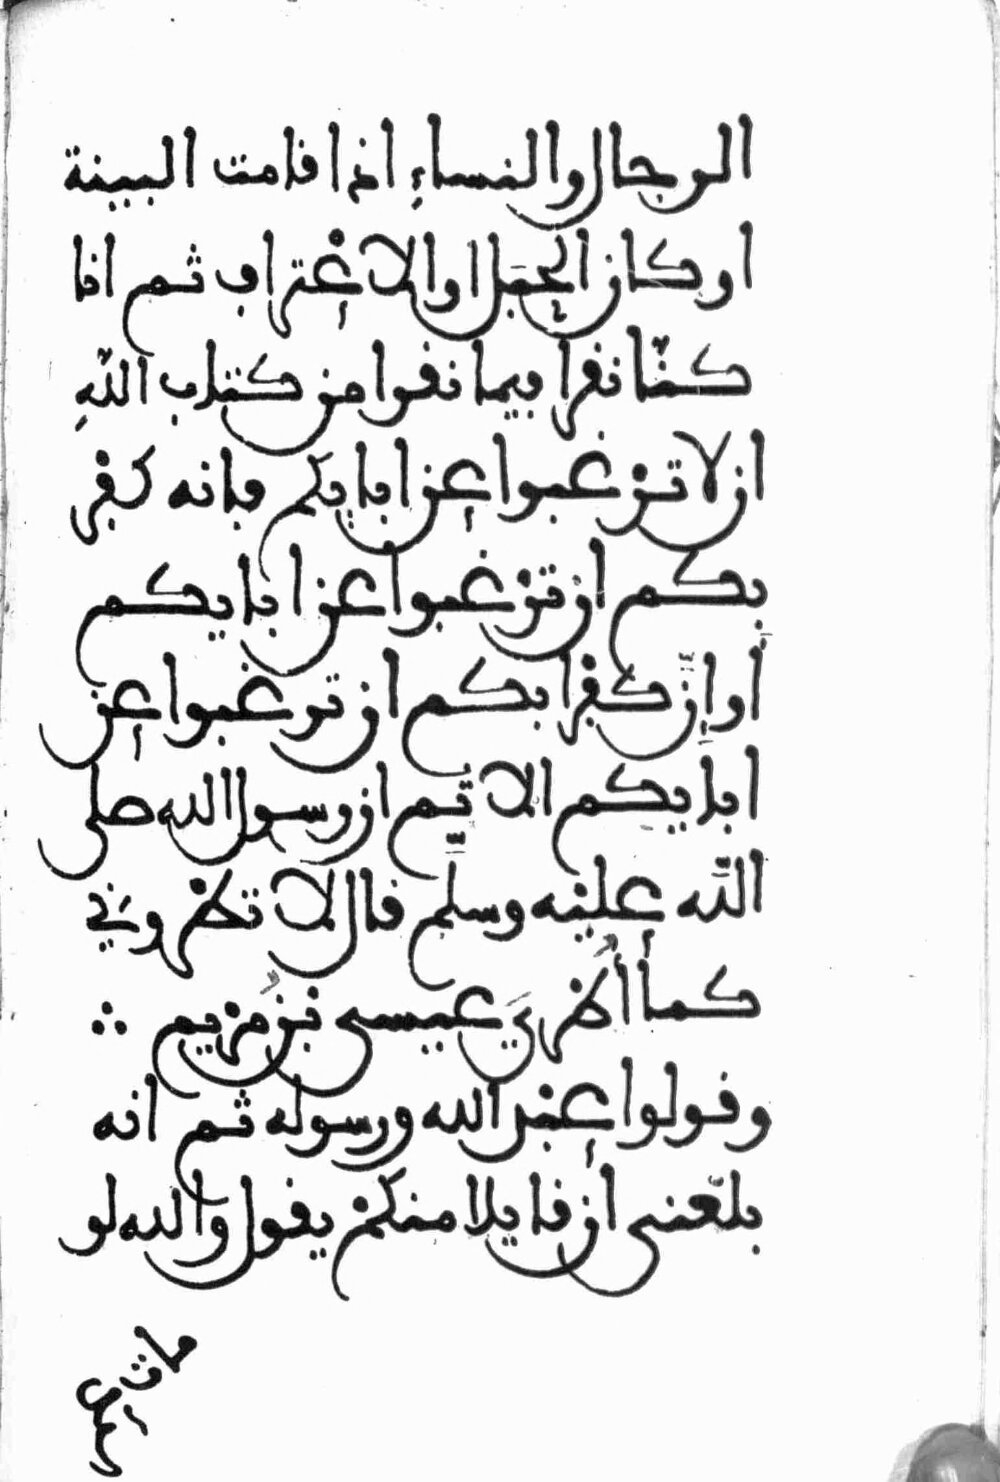 الرجال والنساءِ اذا قامت البينة
او كان الحَبَل او الاعْتراف ثم انا
كنّا نقرا فيما نقرا من كتاب اللّهِ
ان لا ترْغبوا عن ابايكم فانه كفْر
بِكم ان ترْغبوا عن ابايكم
أو إنَّ كفْرا بكم ان ترغبوا عن
ابايكم الا ثم ان رسول الله صلى
اللّه عليْه وسلّم قال لا تطْروني
كما أُطْرِيَ عيسى بْنُ مرْيم ∴
وقولوا عبْد الله ورسوله ثم انه
بلغنى أن قايلا منكمْ يقول والله لو
مات
عمر